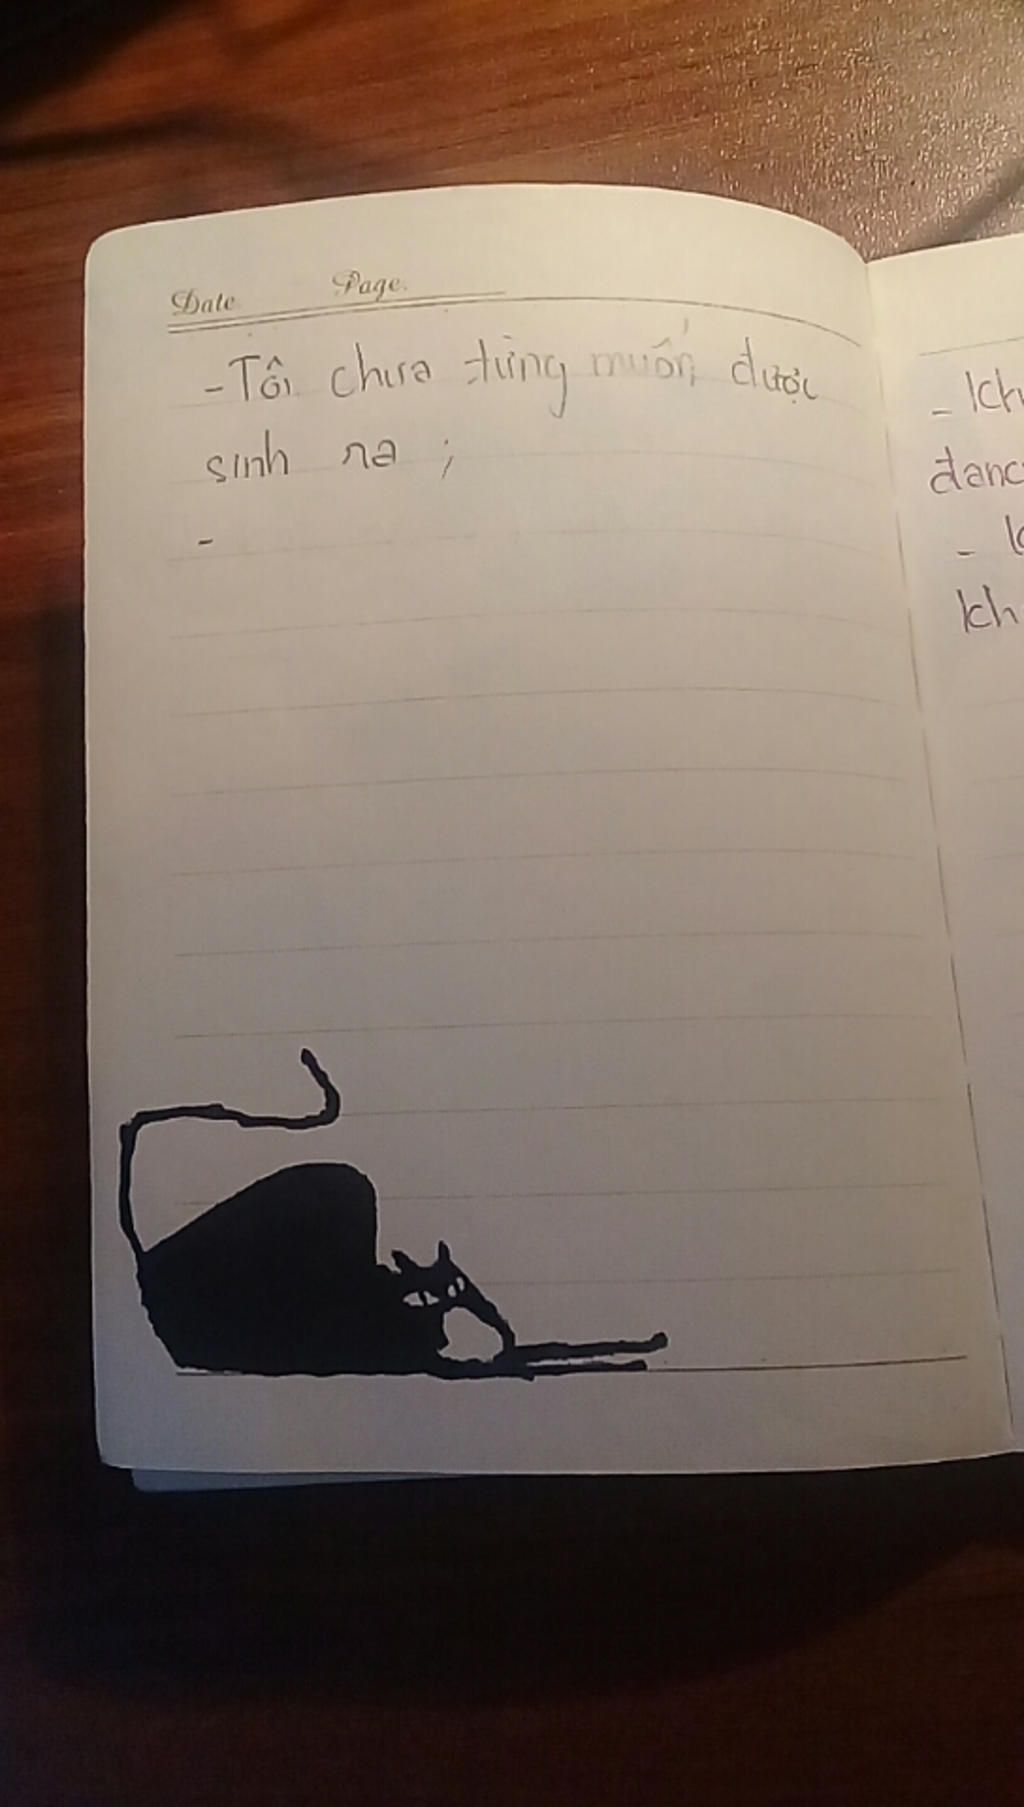 Date Page.
- Tôi chưa từng muốn được
sinh ra ;
-
- Kh
đang
-
Kh